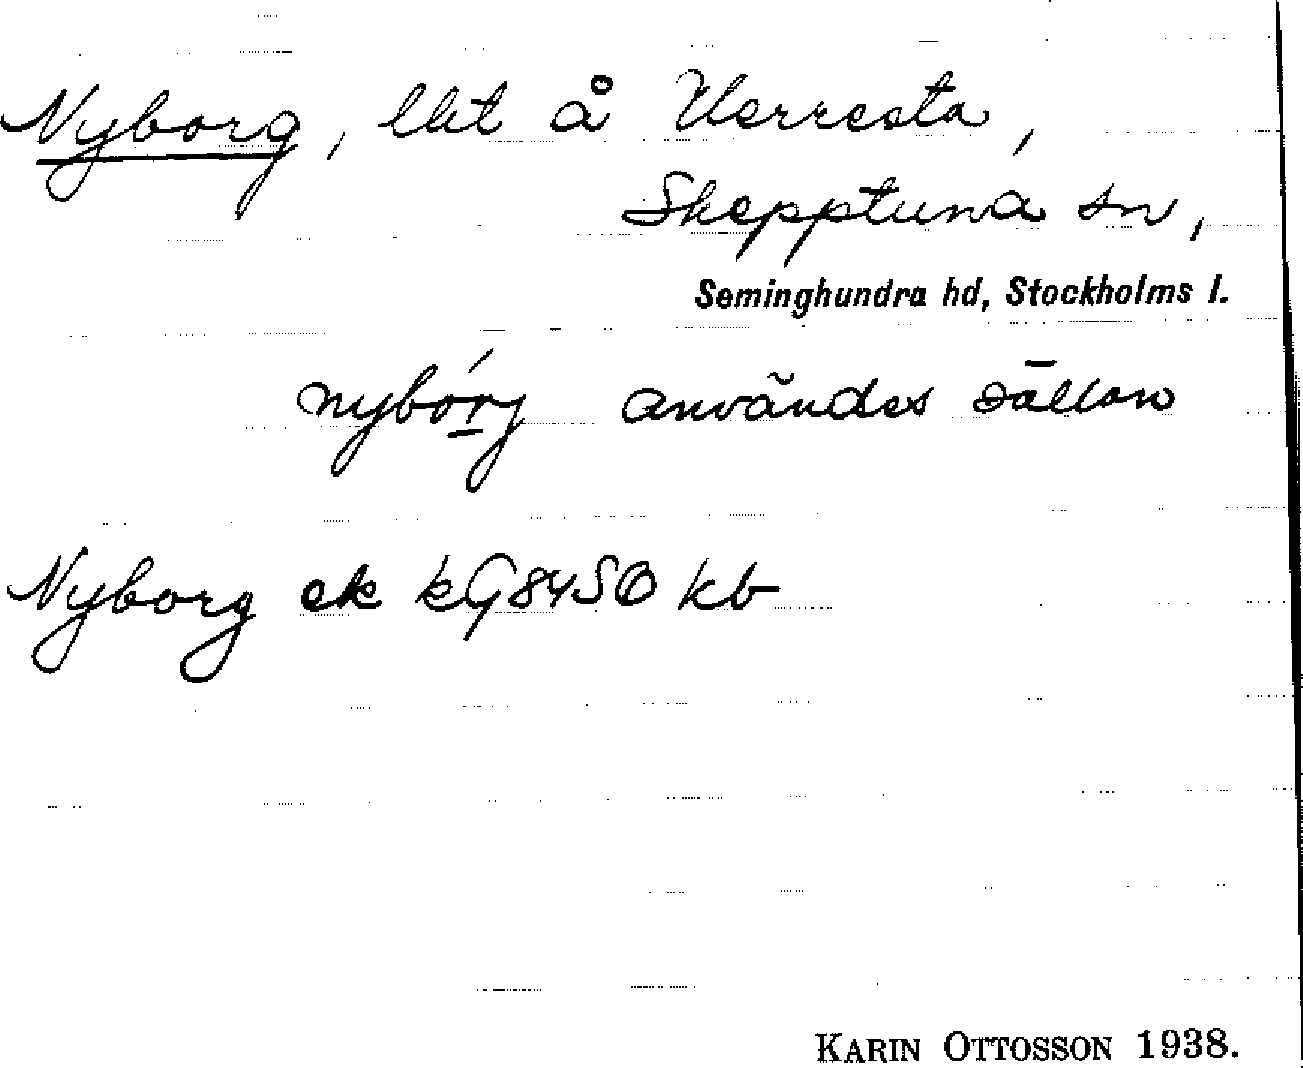 Nyborg, lht å Väsresta,
Skepptuna sn,
Seminghundra hd, Stockholms l.
nybórj användes sällan
Nyborg ek kG8450 kb
KARIN OTTOSSON 1938.